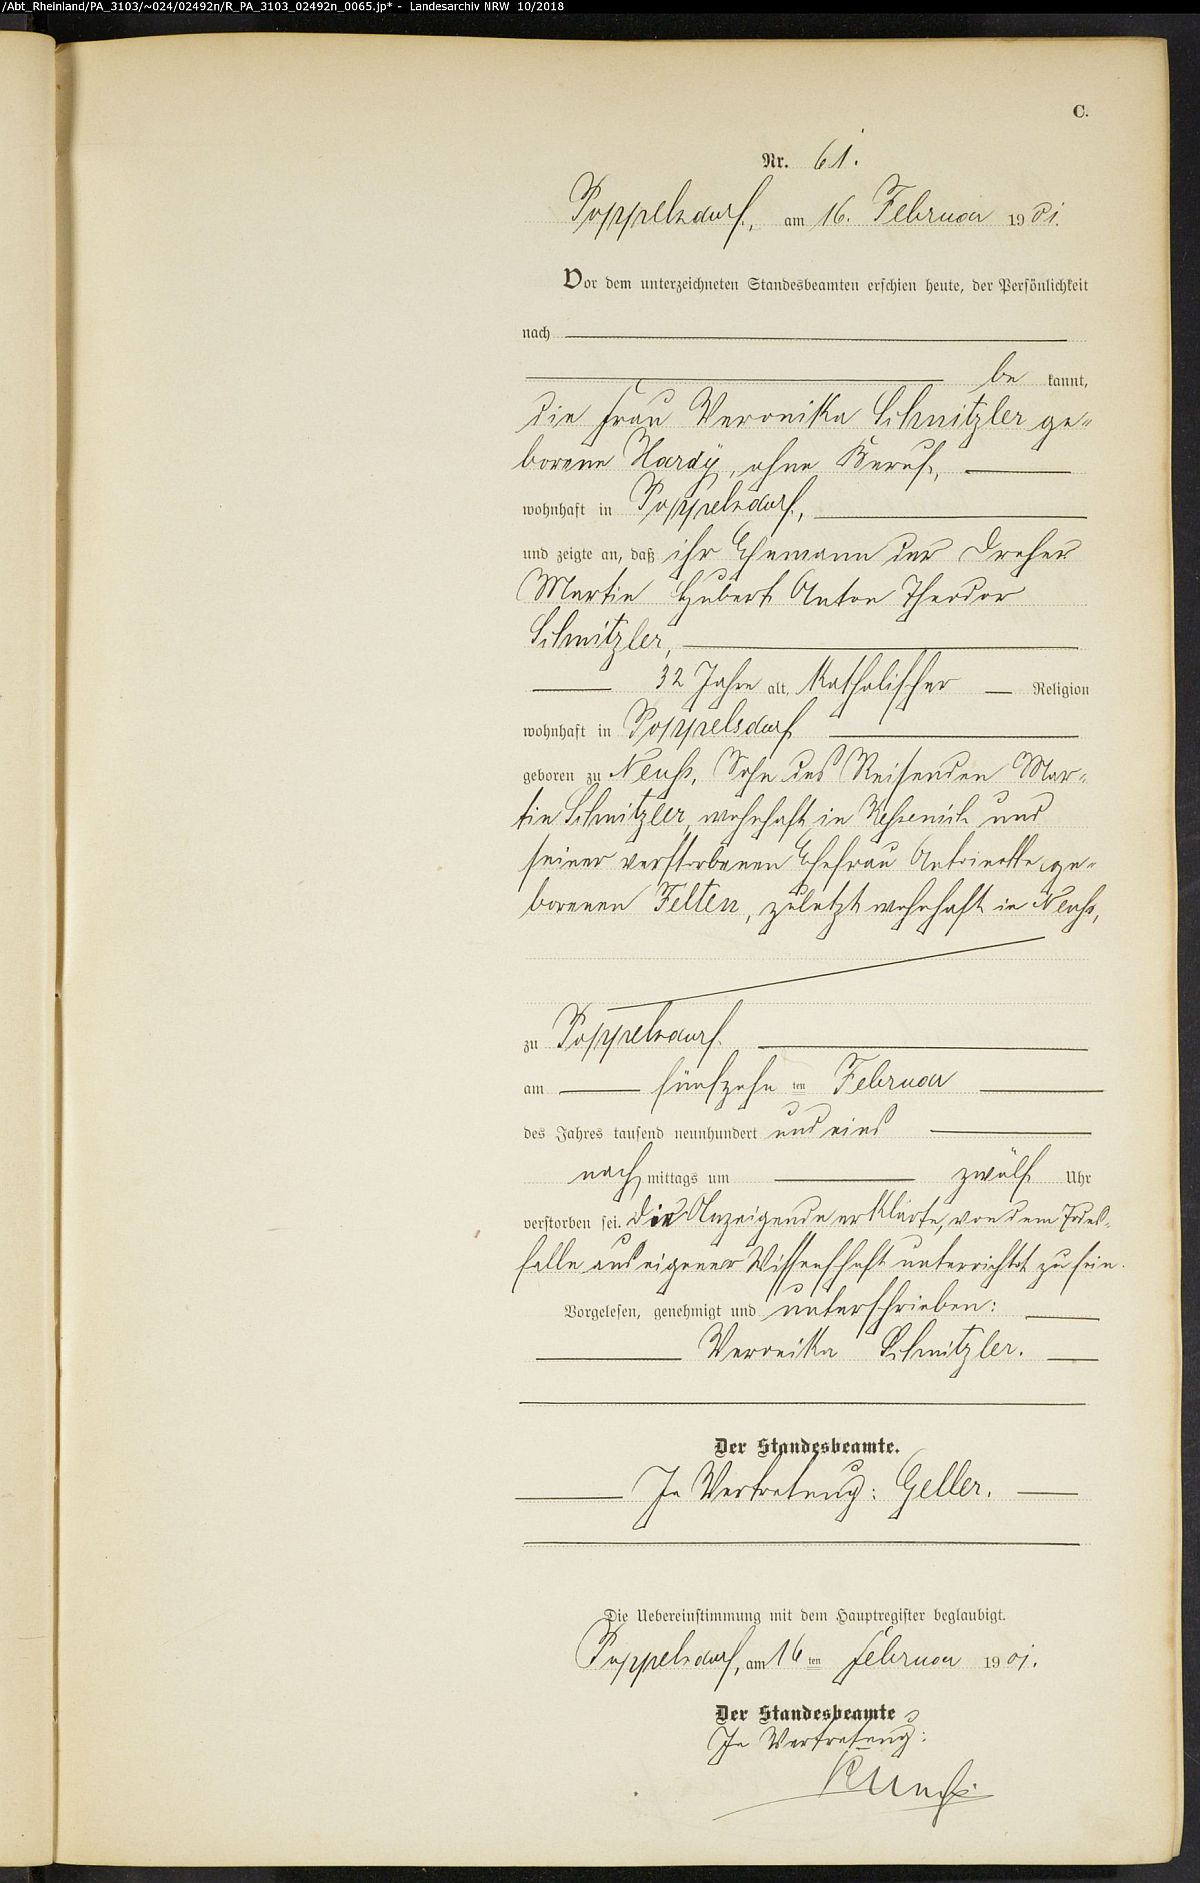 /Abt_Rheinland/PA_3103/~024/02492n/R_PA_3103_02492n_0065.jp* - Landesarchiv NRW 10/2018
C.
Nr. 61.
Poppelsdorf, am 16. Februar 1901.
Vor dem unterzeichneten Standesbeamten erschien heute, der Persönlichkeit
nach
be kannt,
die Frau Veronika Schnitzler ge-
borene Hardÿ, ohne Beruf,
wohnhaft in Poppelsdorf,
und zeigte an, daß ihr Ehemann der Dreher
Martin Hubert Anton Theodor
Schnitzler,
32 Jahre alt, Katholischer Religion
wohnhaft in Poppelsdorf
geboren zu Neuß, Sohn des Reisenden Mar-
tin Schnitzler, wohnhaft in Kessenich und
seiner verstorbenen Ehefrau Antoinette ge-
borenen Felten, zuletzt wohnhaft in Neuß,
zu Poppelsdorf
am fünfzehn ten Februar
des Jahres tausend neunhundert und eins
nach mittags um zwölf Uhr
verstorben sei. Die Anzeigende erklärte, von dem Todes-
falle aus eigener Wissenschaft unterrichtet zu sein.
Vorgelesen, genehmigt und unterschrieben:
Veronika Schnitzler.
Der Standesbeamte.
In Vertretung: Geller.
Die Uebereinstimmung mit dem Hauptregister beglaubigt.
Poppelsdorf, am 16 ten Februar 1901.
Der Standesbeamte
In Vertretung: